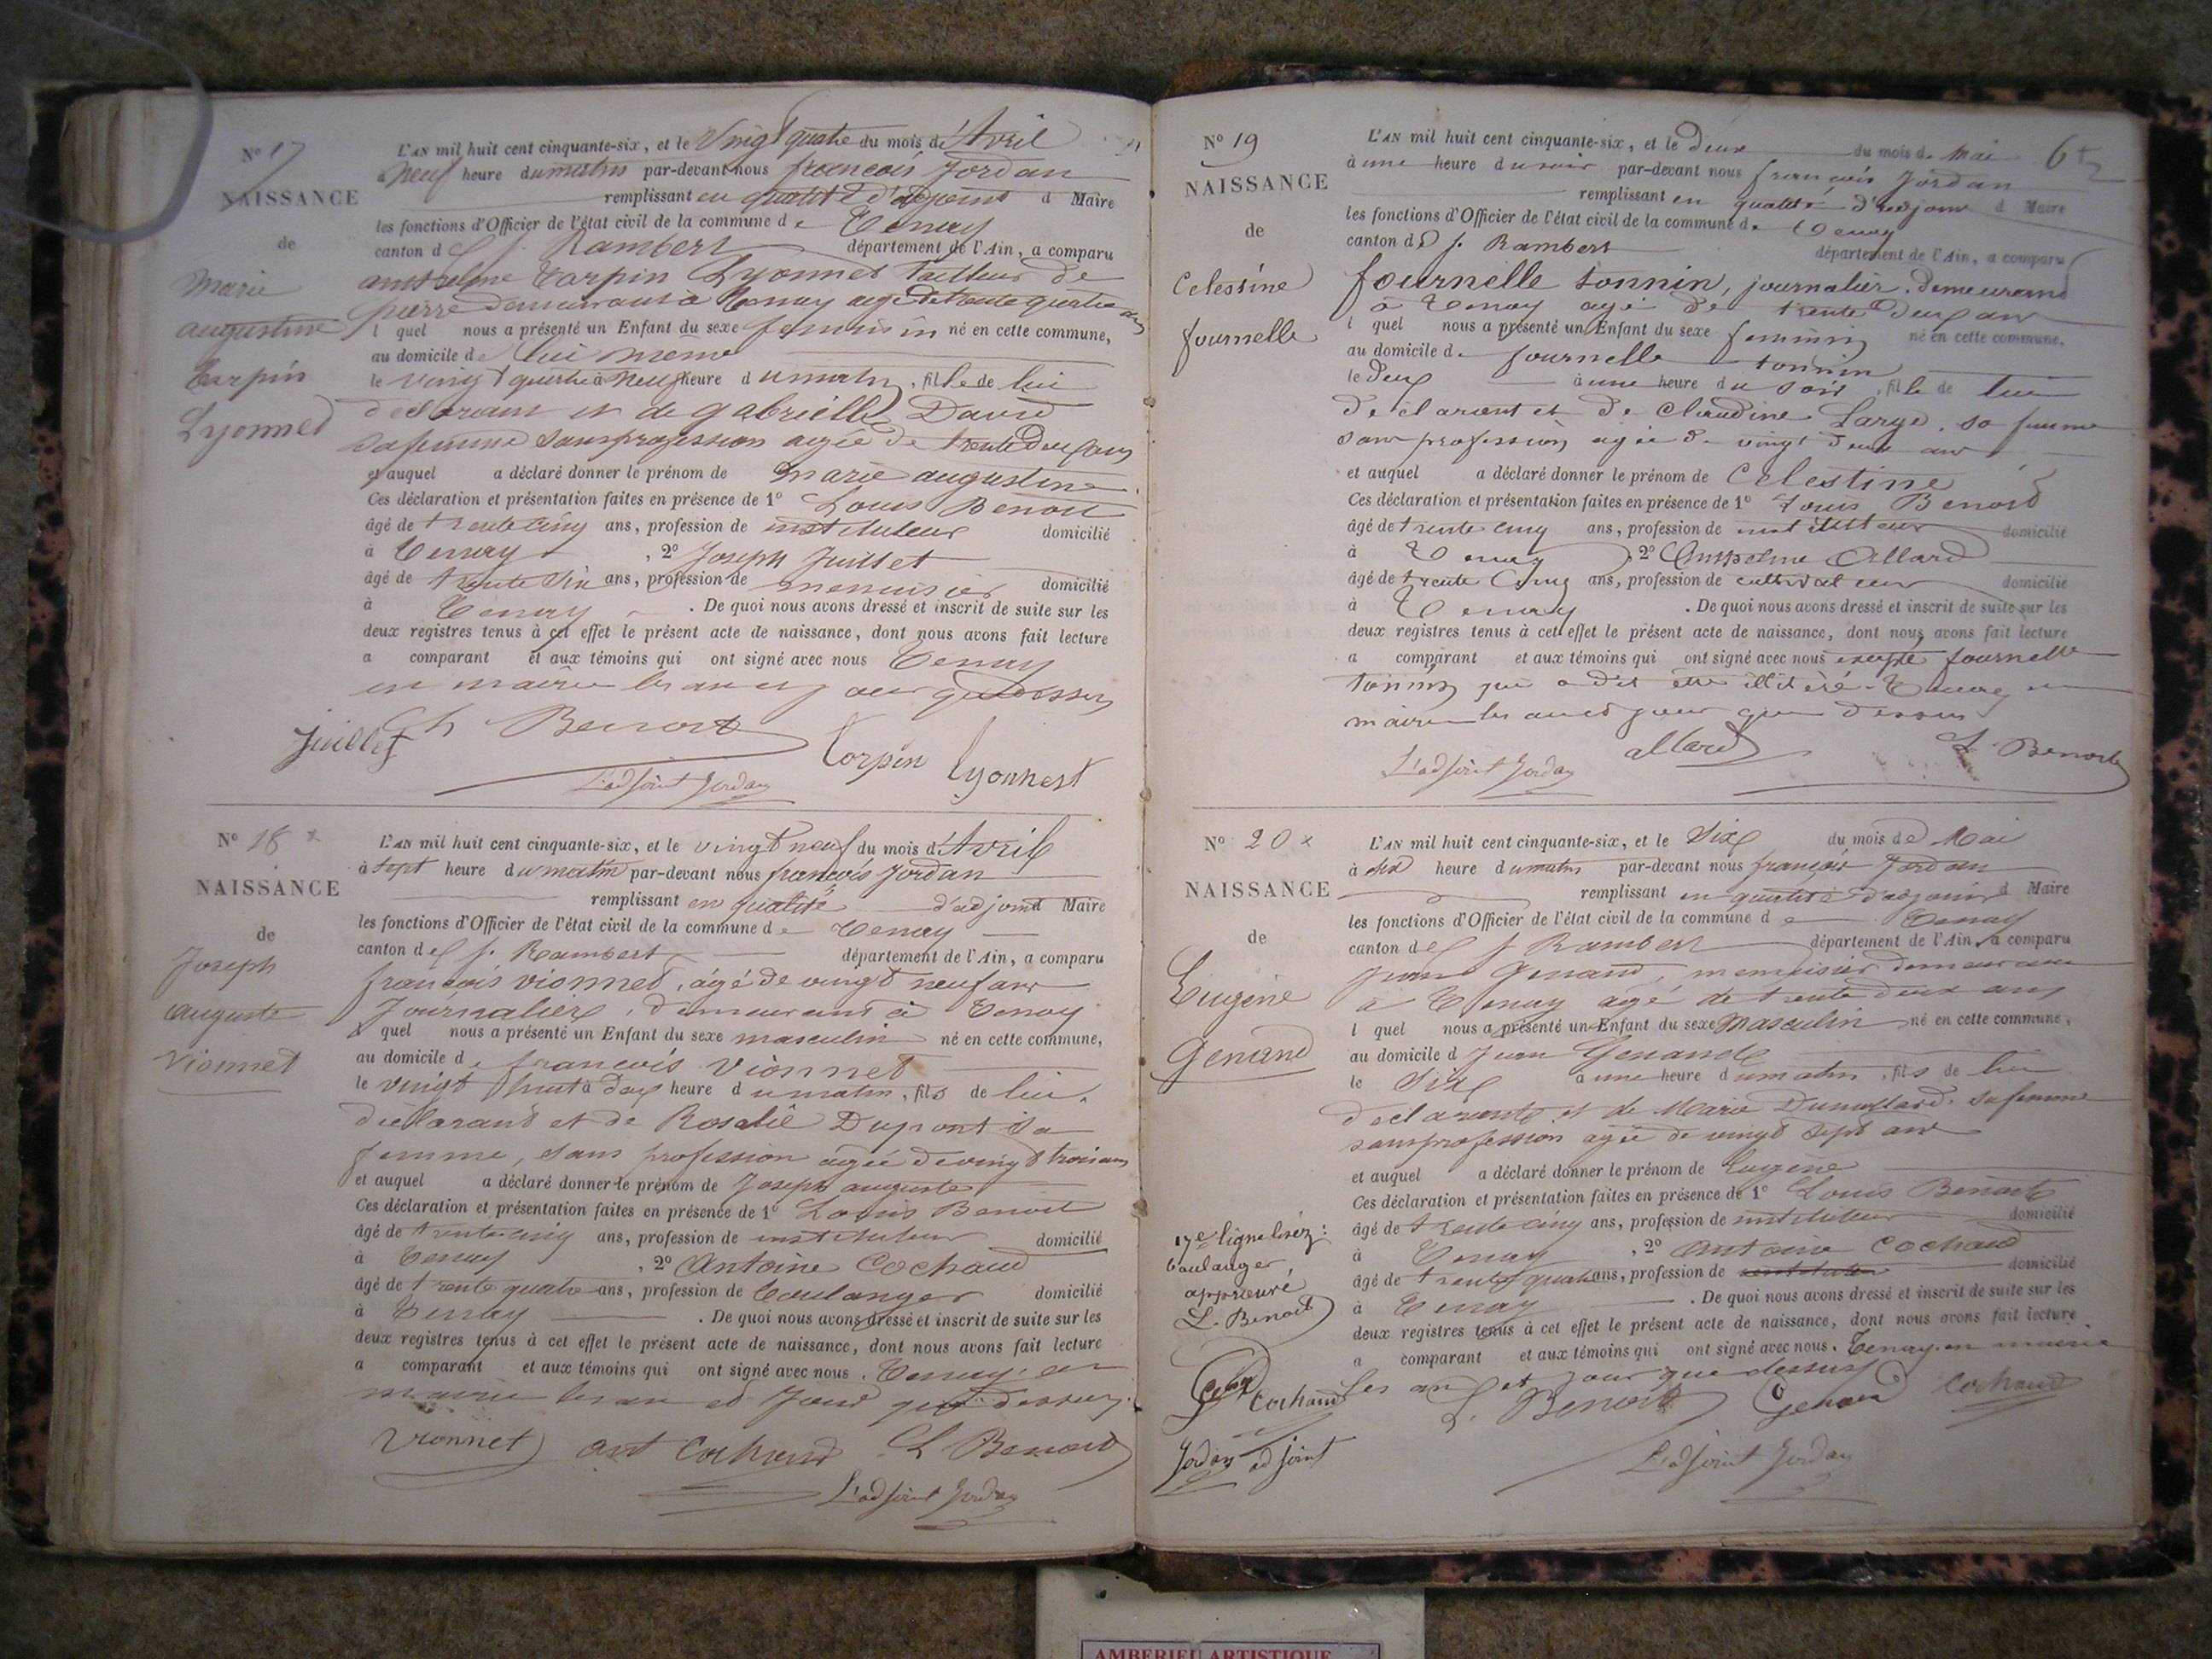 N° 17
NAISSANCE
de
Marie
augustine
Carpin
Lyonnet
L'AN mil huit cent cinquante-six, et le Vingt quatre du mois d'Avril
à Neuf heure du matin par-devant nous françois Jordan
remplissant en qualité d'adjoint d Maire
les fonctions d'Officier de l'état civil de la commune de Tenay
canton de S t. Rambert département de l'Ain, a comparu
anthelme Carpin Lyonnet tailleur de
pierre demeurant à Tenay agé de trente quatre ans
l quel nous a présenté un Enfant du sexe feminin né en cette commune,
au domicile de lui même
le vingt quatre à neuf heure du matin, fille de lui
déclarant et de gabrielle David
sa femme sans profession agée de trente deux ans
et auquel a déclaré donner le prénom de marie augustine
Ces déclaration et présentation faites en présence de 1° Louis Benoit
âgé de trente cinq ans, profession de instituteur domicilié
à Tenay, 2° Joseph Juillet
âgé de trente six ans, profession de menuisier domicilié
à Tenay. De quoi nous avons dressé et inscrit de suite sur les
deux registres tenus à cet effet le présent acte de naissance, dont nous avons fait lecture
a comparant et aux témoins qui ont signé avec nous Tenay
en mairie les an et jour que dessus
Juillet Benoit Corpin Lyonnest
L'adjoint Jordan
N° 18
NAISSANCE
de
Joseph
auguste
Vionnet
L'AN mil huit cent cinquante-six, et le vingt neuf du mois d'Avril
à Sept heure du matin par-devant nous françois Jordan
remplissant en qualité d'adjoint Maire
les fonctions d'Officier de l'état civil de la commune de Tenay
canton de S t. Rambert département de l'Ain, a comparu
françois vionnet, âgé de vingt neuf ans
Journalier, demeurant à Tenay
l quel nous a présenté un Enfant du sexe masculin né en cette commune,
au domicile de françois Vionnet
le vingt huit à dix heure du matin, fils de lui
déclarant et de Rosalie Dupont sa
femme, sans profession âgée de vingt trois ans
et auquel a déclaré donner le prénom de Joseph auguste
Ces déclaration et présentation faites en présence de 1° Louis Benoit
âgé de trente cinq ans, profession de instituteur domicilié
à Tenay, 2° Antoine Cochaud
âgé de trente quatre ans, profession de boulanger domicilié
à Tenay. De quoi nous avons dressé et inscrit de suite sur les
deux registres tenus à cet effet le présent acte de naissance, dont nous avons fait lecture
a comparant et aux témoins qui ont signé avec nous. Tenay en
mairie les an et Jour que dessus.
Vionnet ant Cochaud L Benoit
L'adjoint Jordan
N° 19
NAISSANCE
de
Celestine
fournelle
L'AN mil huit cent cinquante-six, et le Deux du mois de Mai
à une heure du soir par-devant nous françois Jordan
remplissant en qualité d'adjoint d Maire
les fonctions d'Officier de l'état civil de la commune de Tenay
canton de S t. Rambert département de l'Ain, a comparu
fournelle tonnin, journalier. demeurant
à Tenay agé de trente deux ans
l quel nous a présenté un Enfant du sexe feminin né en cette commune,
au domicile de fournelle tonnin
le deux à une heure du soir, fille de lui
déclarant et de Claudine Large, sa femme
sans profession agée de vingt deux ans
et auquel a déclaré donner le prénom de Celestine
Ces déclaration et présentation faites en présence de 1° Louis Benoit
âgé de trente cinq ans, profession de instituteur domicilié
à Tenay, 2° Anthelme Allard
âgé de trente Cinq ans, profession de cultivateur domicilié
à Tenay. De quoi nous avons dressé et inscrit de suite sur les
deux registres tenus à cet effet le présent acte de naissance, dont nous avons fait lecture
a comparant et aux témoins qui ont signé avec nous excepté fournelle
tonnin qui a dit être illitéré. Tenay en
mairie les an et jour que dessus
L'adjoint Jordan allard L. Benoit
N° 20
NAISSANCE
de
Eugène
Genand
L'AN mil huit cent cinquante-six, et le Six du mois de Mai
à six heure du matin par-devant nous françois Jordan
remplissant en qualité d'adjoint d Maire
les fonctions d'Officier de l'état civil de la commune de Tenay
canton de S t Rambert département de l'Ain, a comparu
Jean Genand, menuisier demeurant
à Tenay agé de trente deux ans
l quel nous a présenté un Enfant du sexe Masculin né en cette commune,
au domicile d Jean Genand
le Six à une heure du matin, fils de lui
déclarant et de Marie Dumollard. sa femme
sans profession agée de vingt sept ans
et auquel a déclaré donner le prénom de Eugène
Ces déclaration et présentation faites en présence de 1° Louis Benoit
âgé de trente cinq ans, profession de instituteur domicilié
à Tenay, 2° Antoine Cochaud
âgé de trente quatre ans, profession de instituteur domicilié
à Tenay. De quoi nous avons dressé et inscrit de suite sur les
deux registres tenus à cet effet le présent acte de naissance, dont nous avons fait lecture
a comparant et aux témoins qui ont signé avec nous. Tenay en mairie
les an et jour que dessus
L. Benoit Genand Cochaud
L'adjoint Jordan
17e ligne lisez:
boulanger
approuvé
L. Benoit
Cochaud
Jordan adjoint
AMBERIEU ARTISTIQUE